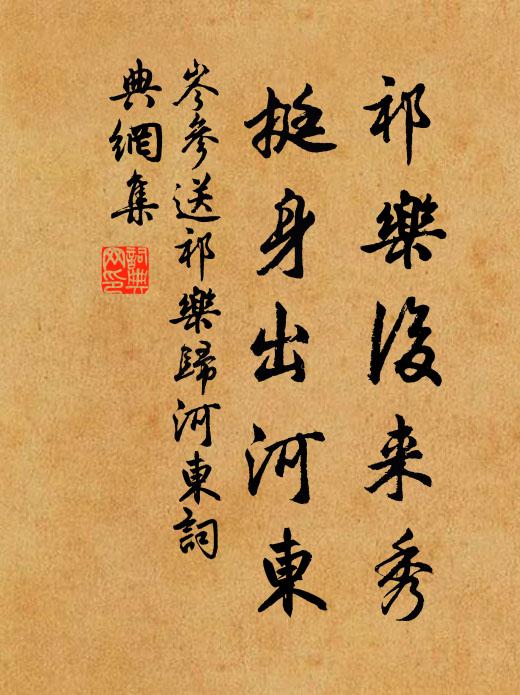 祁樂後来秀
挺身出河東
岑參送祁樂歸河東詞
典網集
詞典
网印